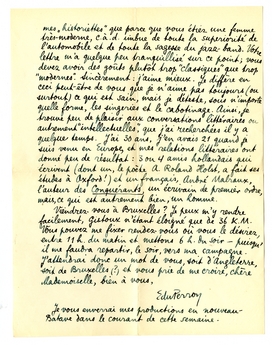 mes "historiettes" que parce que vous étiez une femme
très-moderne, c.à d. imbue de toute la supériorité de
l'automobile et de toute la sagesse du jazz-band. Votre
lettre m'a quelque peu tranquillisé sur ce point; vous
devez avoir des goûts plutôt trop "classiques" que trop
"modernes". Sincèrement: j'aime mieux. Je diffère en
ceci peut-être de vous que je n'aime pas toujours (ou
surtout) ce qui est sain, mais je déteste, sous n'importe
quelle forme, les singeries et le cabotinage. Ainsi, je
trouve peu de plaisir aux conversations littéraires ou
autrement intellectuelles, que j'ai recherchées il y a
quelque temps. J'ai 30 ans, j'en avais 21 quand je
suis venu en Europe, et mes relations littéraires ont
donné peu de résultat: 3 ou 4 amis hollandais qui
écrivent (dont un, le poète, A. Roland Holst, a fait ses
études à Oxford!) et un français, André Malraux,
l'auteur des Conquérants, un écrivain de premier ordre,
mais, ce qui est autrement bien, un homme.
Viendrez-vous à Bruxelles? Je peux m'y rendre
facilement, Gistoux n'étant éloigné que de 36 K.M.
Vous pouvez me fixer rendez-vous où vous le désirez,
entre 11 h. du matin et mettons 6 h. du soir - puisqu'
il me faudra repartir, le soir, vers ma campagne.
J'attendrai donc un mot de vous, soit d'Angleterre,
soit de Bruxelles (?) et vous prie de me croire, chère
Mademoiselle, bien à vous,
EduPerron
Je vous enverrai mes productions en nouveau-
Batave dans le courant de cette semaine.